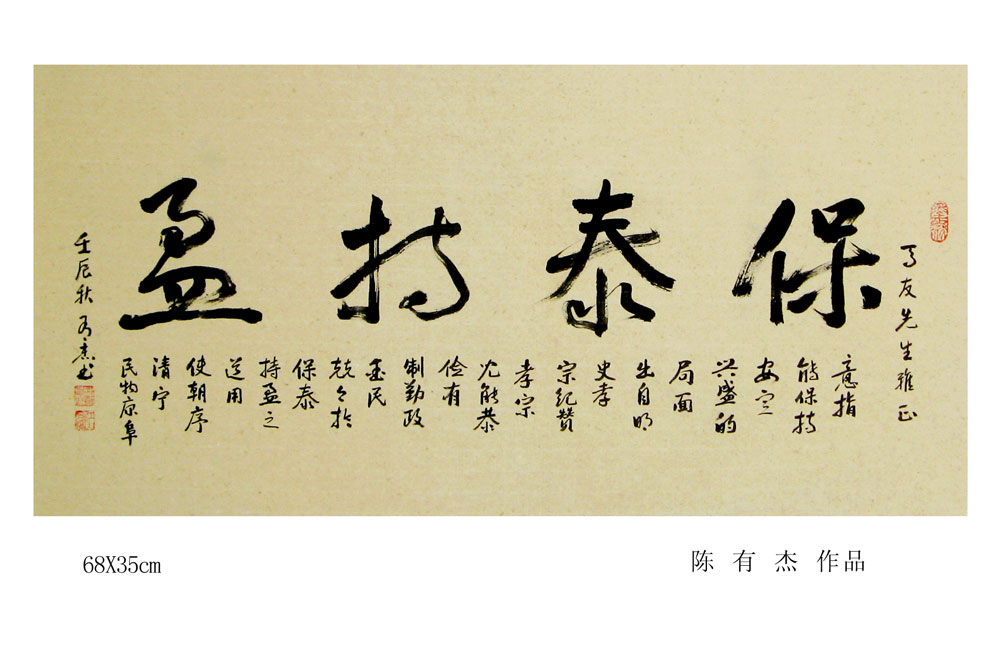 友先生雅正
保泰持盈
意指
能保持
安定
兴盛的
局面
出自明
史孝
宗纪赞
孝宗
尤能恭
俭有
制勤政
爱民
兢兢於
保泰
持盈之
道用
使朝序
清宁
民物康阜
壬辰秋有杰书
68X35cm
陈有杰作品